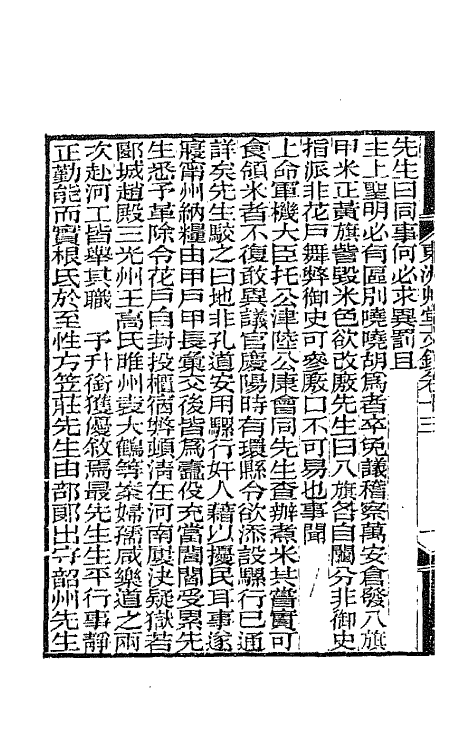 先生曰同事何必求異罰且
主上聖明必有區別曉曉胡爲者卒免議稽察萬安倉發八旗
甲米正黃旗訾毀米色欲改廒先生曰八旗各自鬮分非御史
指派非花戶舞弊御史可參廒口不可易也事聞
上命軍機大臣托公津陸公康會同先生查辦煮米共嘗實可
食領米者不復敢異議官慶陽時有環縣令欲添設騾行已通
詳矣先生駁之曰地非孔道安用騾行奸人藉以擾民耳事遂
寢甯州納糧由甲戶甲長彙交後皆爲蠹役充當閭閻受累先
生悉予革除令花戶自封投櫃宿弊頓淸在河南屢決疑獄若
郾城趙殿三光州王高氏睢州袁大鶴等案婦孺咸樂道之兩
次赴河工皆舉其職　予升銜獲優敘焉最先生生平行事靜
正勤能而實根氏於至性方笠莊先生由部郎出守韶州先生
東洲艸堂文鈔卷十三